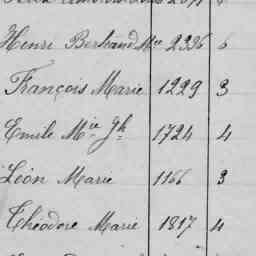 Henri Bertrand Mie 2336 6
François Marie 1229 3
Emile Mie Jh 1724 4
Léon Marie 1166 3
Théodore Marie 1817 4